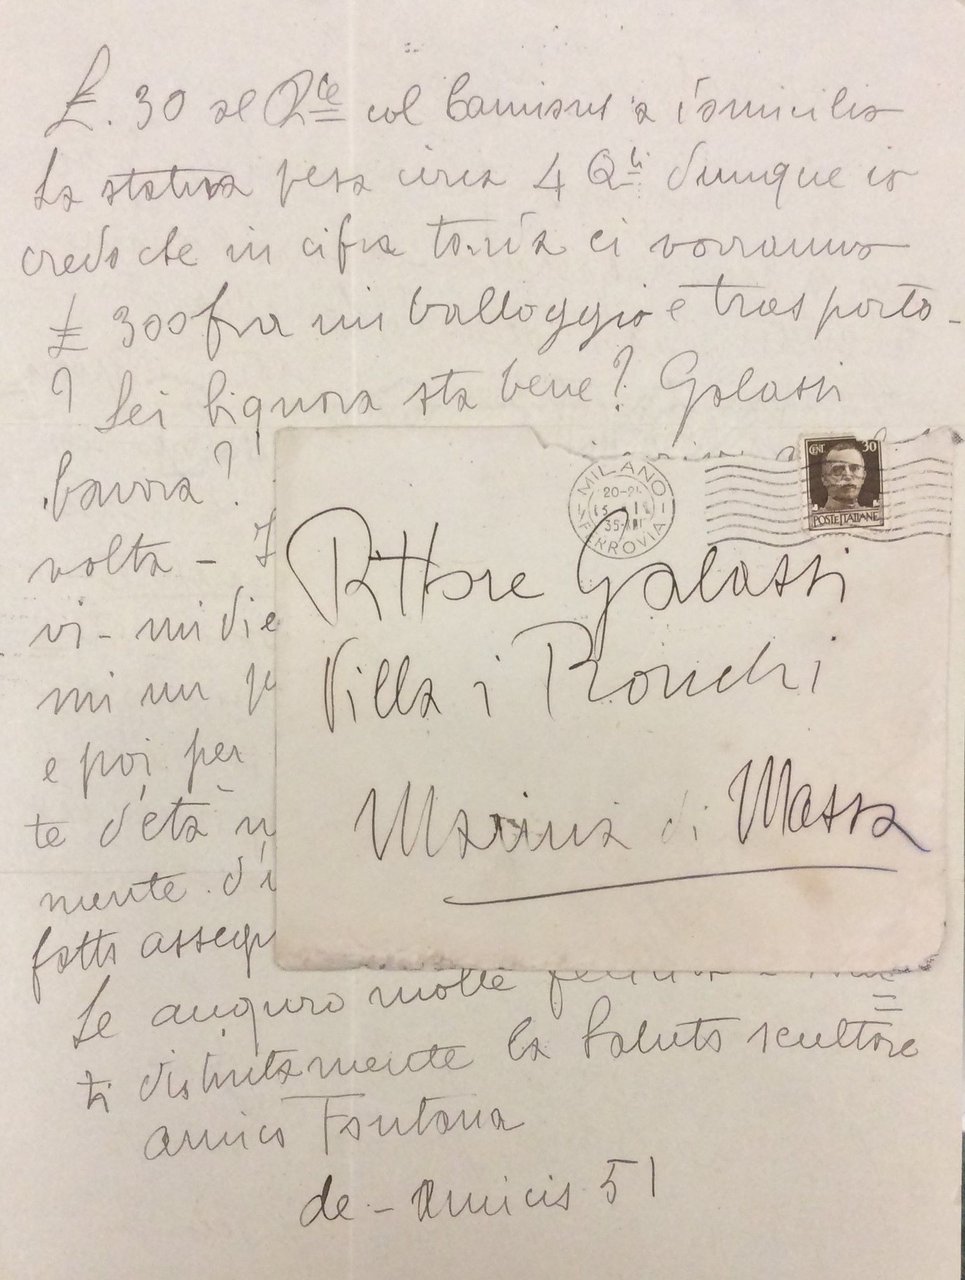 £. 30 al Q.le col Camions a domicilio
La statua pesa circa 4 Q.li dunque io
credo che in cifra tonda ci vorranno
£ 300 fra imballoggio e trasporto -
? Lei Signora sta bene? Galassi
lavora?
volta -
vi - mi die
mi un
e poi per
te d'età
mente.
fatto assegn
Le auguro molte
ti distintamente la Saluto scultore
amico Fontana
de - Amicis 51
MILANO
20-21
35-XIII
FERROVIA
CENT. 30
POSTE ITALIANE
Pittore Galassi
Villa i Ronchi
Marina di Massa